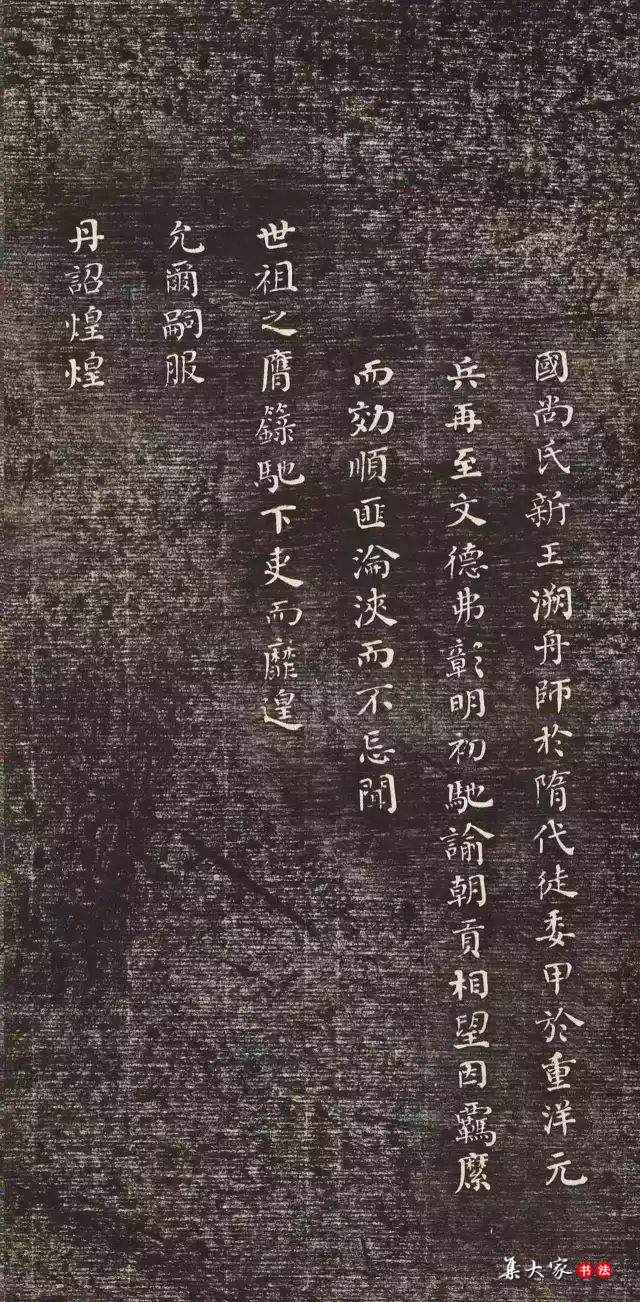 國尚氏新王溯舟師於隋代徒委甲於重洋元
兵再至文德弗彰明初馳諭朝貢相望因羈縻
而効順匪淪浹而不忘聞
世祖之膺籙馳下吏而靡遑
允爾嗣服
丹詔煌煌
集大家书法